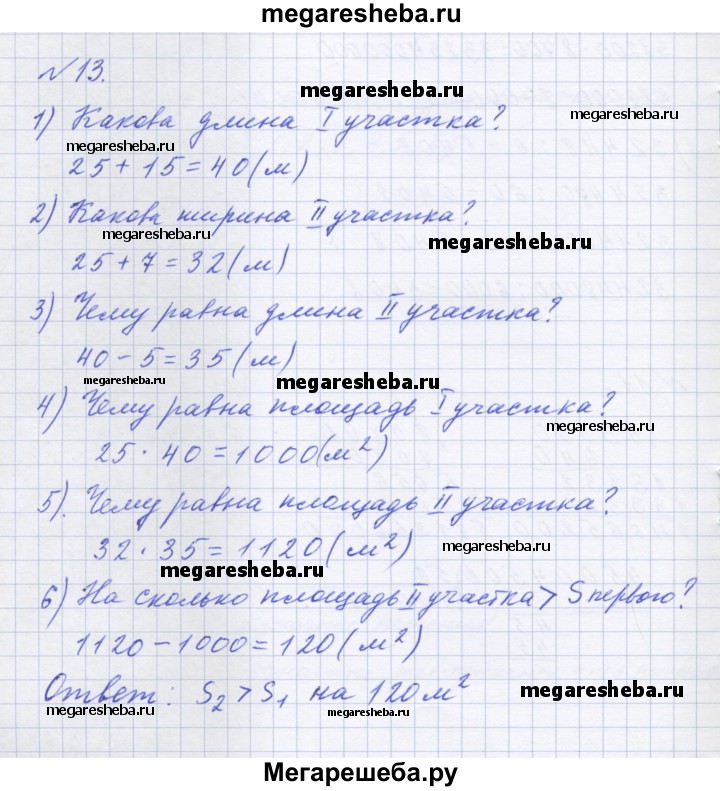 megaresheba.ru
№13.
megaresheba.ru
1) Какова длина I участка?
megaresheba.ru
megaresheba.ru
25 + 15 = 40 (м)
2) Какова ширина II участка?
megaresheba.ru
megaresheba.ru
25 + 7 = 32 (м)
3) Чему равна длина II участка?
40 - 5 = 35 (м)
megaresheba.ru
megaresheba.ru
4) Чему равна площадь I участка?
megaresheba.ru
25 · 40 = 1000 (м²)
5). Чему равна площадь II участка?
32 · 35 = 1120 (м²)
megaresheba.ru
megaresheba.ru
6) На сколько площадь II участка > S первого?
1120 - 1000 = 120 (м²)
Ответ: S₂ > S₁ на 120 м²
megaresheba.ru
megaresheba.ru
megaresheba.ru
Мегарешеба.ру